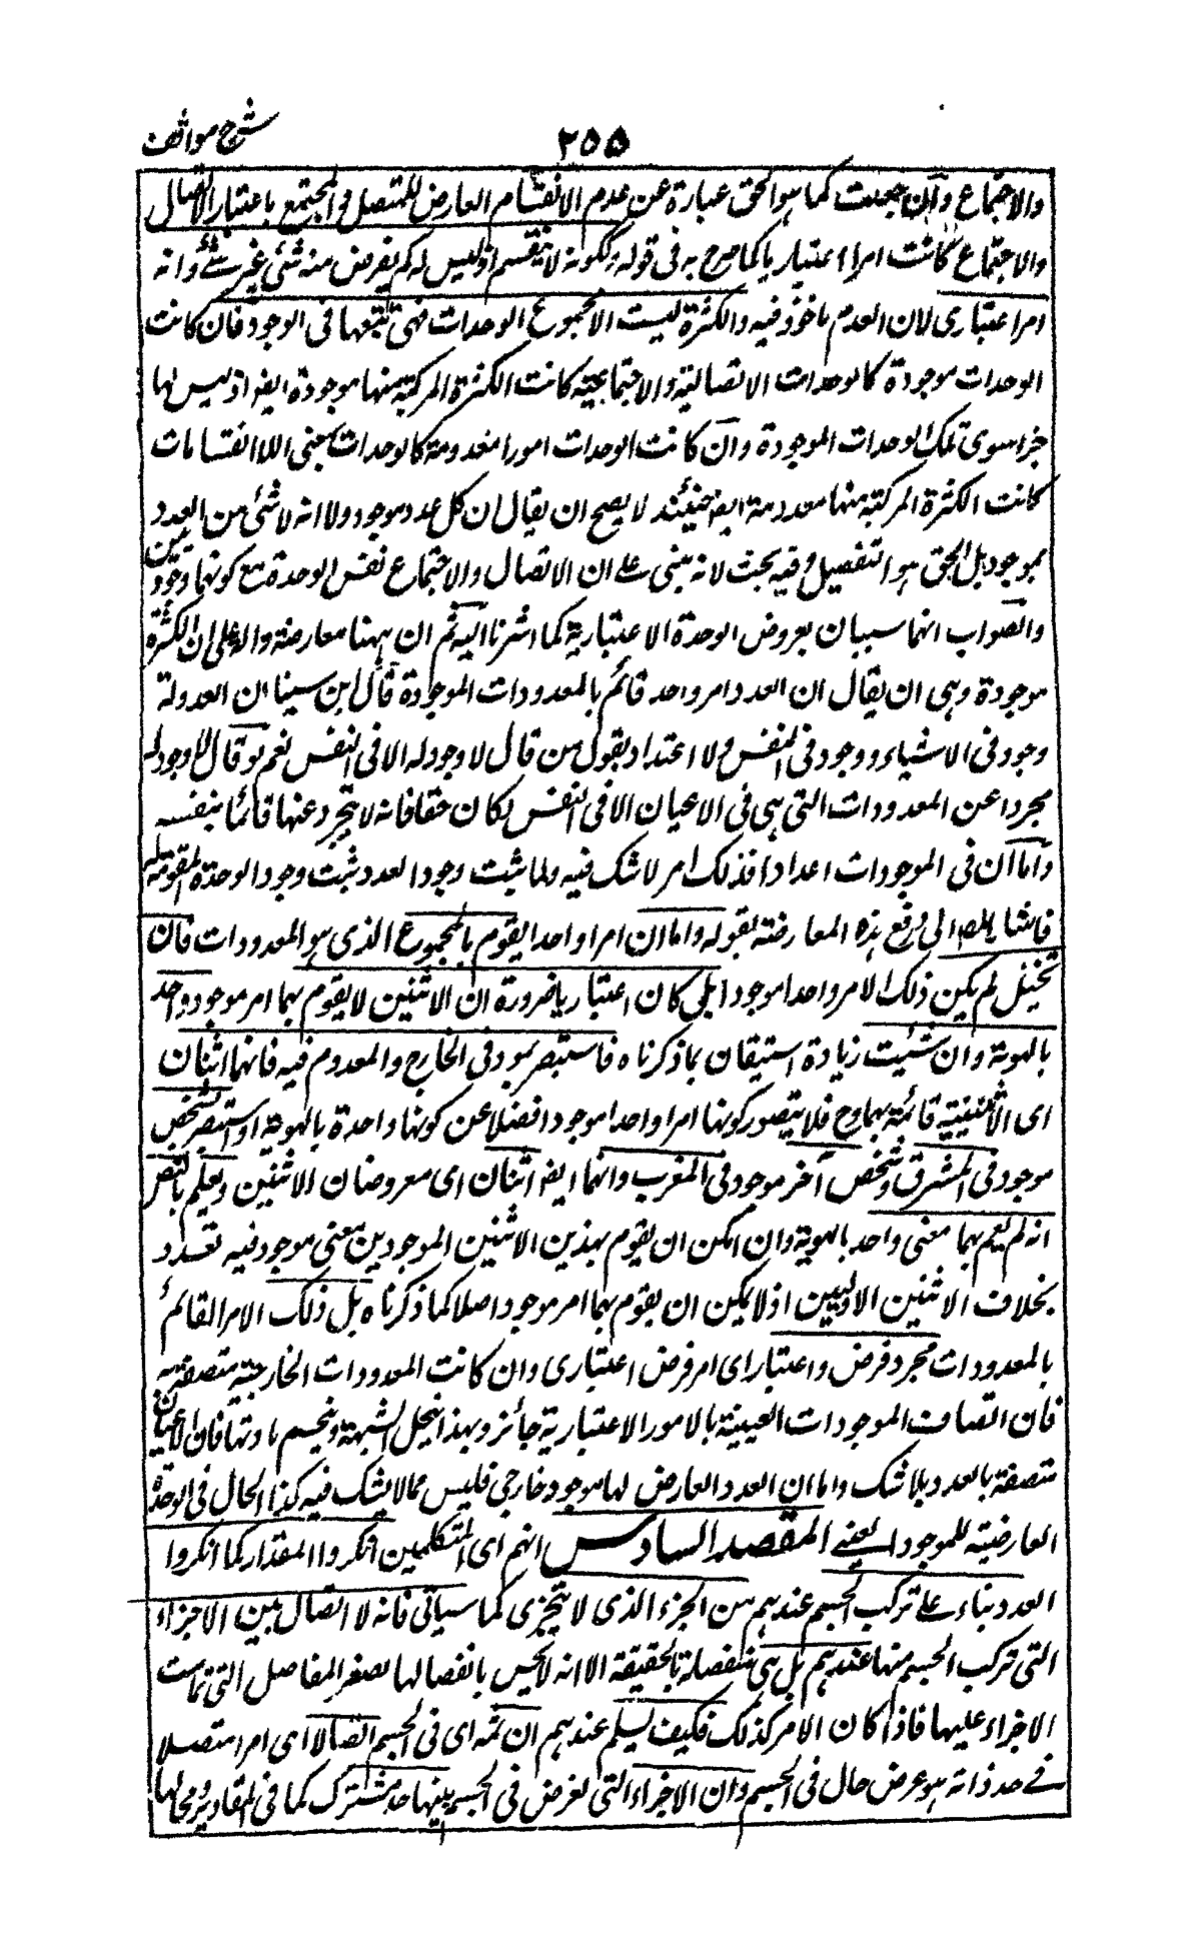 شرح مواقف
٢٥٥
والاجتماع وان جعلت كما هو الحق عبارة عن عدم الانقسام العارض للمتصل والمجتمع باعتبار الاتصال
والاجتماع كانت امرا اعتباريا كما صرح به فى قوله وككونه لا ينقسم اذ ليس له كم يفرض منه شئ غير شئ وانه
امر اعتبارى لان العدم ماخوذ فيه والكثرة ليست الا مجموع الوحدات فهى تتبعها فى الوجود فان كانت
الوحدات موجودة كالوحدات الاتصالية والاجتماعية كانت الكثرة المركبة منها موجودة ايضا اذ ليس لها
جزء سوى تلك الوحدات الموجودة وان كانت الوحدات امورا معدومة كالوحدات بمعنى اللاانقسامات
كانت الكثرة المركبة منها معدومة ايضا فحينئذ لا يصح ان يقال ان كل عدد موجود ولا انه لا شئ من العدد
بموجود بل الحق هو التفصيل وفيه بحث لانه مبنى على ان الاتصال والاجتماع نفس الوحدة مع كونهما وجوديين
والصواب انهما سببان بعروض الوحدة الاعتبارية كما اشرنا اليه ثم ان ههنا معارضة دالة على ان الكثرة
موجودة وهى ان يقال ان العدد امر واحد قائم بالمعدودات الموجودة قال ابن سينا ان العدد له
وجود فى الاشياء ووجود فى النفس ولا اعتداد بقول من قال لا وجود له الا فى النفس نعم لو قال لا وجود له
مجردا عن المعدودات التى هى فى الاعيان الا فى النفس لكان حقا فانه لا يتجرد عنها قائما بنفسه
واما ان فى الموجودات اعدادا فذلك امر لا شك فيه ولما ثبت وجود العدد ثبت وجود الوحدة المقومة له
فاشار المص الى دفع هذه المعارضة بقوله واما ان امرا واحدا يقوم بالمجموع الذى هو المعدودات فان
تخيل لم يكن ذلك الامر واحدا موجودا بلى كان اعتباريا ضرورة ان الاثنين لا يقوم بهما امر موجود واحد
بالهوية وان شئت زيادة استيقان بما ذكرناه فاستبصر بموجود فى الخارج والمعدوم فيه فانهما اثنان
اى الاثنينية قائمة بهما وح فلا يتصور كونها امرا واحدا موجودا فضلا عن كونها واحدة بالهوية او استبصر بشخص
موجود فى المشرق وشخص آخر موجود فى المغرب وانهما ايضا اثنان اى معروضان للاثنين ويعلم بالنص
انه لم يقم بهما معنى واحد بالهوية وان امكن ان يقوم بهذين الاثنين الموجودين معنى موجود فيه تعدد
بخلاف الاثنين الاوليين اذ لا يمكن ان يقوم بهما امر موجود اصلا كما ذكرناه بل ذلك الامر القائم
بالمعدودات مجرد فرض واعتبار اى امر فرض اعتبارى وان كانت المعدودات الخارجية متصفة به
فان اتصاف الموجودات العينية بالامور الاعتبارية جائز وبهذا ينحل الشبهة وينحسم مادتها فان الاعيان
متصفة بالعدد بلا شك واما ان العدد العارض لها موجود خارجى فليس مما لا يشك فيه كذا الحال فى الوحدة
العارضة للموجود العينى المقصد السادس انهم اى المتكلمين انكروا المقدار كما انكروا
العدد بناء على تركب الجسم عندهم من الجزء الذى لا يتجزى كما سياتى فانه لا اتصال بين الاجزاء
التى تركب الجسم منها عندهم بل هى منفصلة بالحقيقة الا انه لا يحس بانفصالها لصغر المفاصل التى تماست
الاجزاء عليها فاذا كان الامر كذلك فكيف يسلم عندهم ان ثمه اى فى الجسم اتصالا اى امرا متصلا
فى حد ذاته هو عرض حال فى الجسم وان الاجزاء التى تفرض فى الجسم بينها حد مشترك كما فى المقادير ومحالها